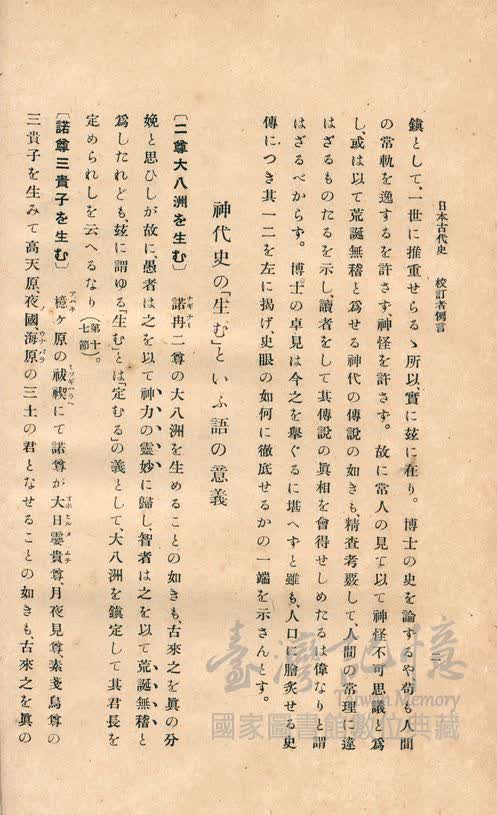 日本古代史　校訂者例言
二
鎭として、一世に推重せらるゝ所以、實に玆に在り。博士の史を論ずるや苟も人間
の常軌を逸するを許さず、神怪を許さず。故に常人の見て以て神怪不可思議と爲
し、或は以て荒誕無稽と爲せる神代の傳說の如きも、精査考覈して、人間の常理に違
はざるものたるを示し、讀者をして其傳說の眞相を會得せしめたるは偉なりと謂
はざるべからず。博士の卓見は今之を擧ぐるに堪へずと雖も、人口に膾炙せる史
傳につき其一二を左に揭げ、史眼の如何に徹底せるかの一端を示さんとす。
神代史の「生む」といふ語の意義
〔二尊大八洲を生む〕　諾冉二尊の大八洲を生めることの如きも、古來之を眞の分
ナギナミ
娩と思ひしが故に、愚者は之を以て神力の靈妙に歸し、智者は之を以て荒誕無稽と
爲したれども、玆に謂ゆる「生む」とは「定むる」の義として、大八洲を鎭定して其君長を
定められしを云へるなり（第十七節）。
〔諾尊三貴子を生む〕　檍ヶ原の祓禊にて諾尊が大日孁貴尊、月夜見尊、素戔嗚尊の
アハキ　ミソギハラヘ　オホヒルメムチ
三貴子を生みて高天原、夜國、海原の三土の君となせることの如きも、古來之を眞の
ウナバラ
臺灣記憶
Taiwan Memory
國家圖書館數位典藏